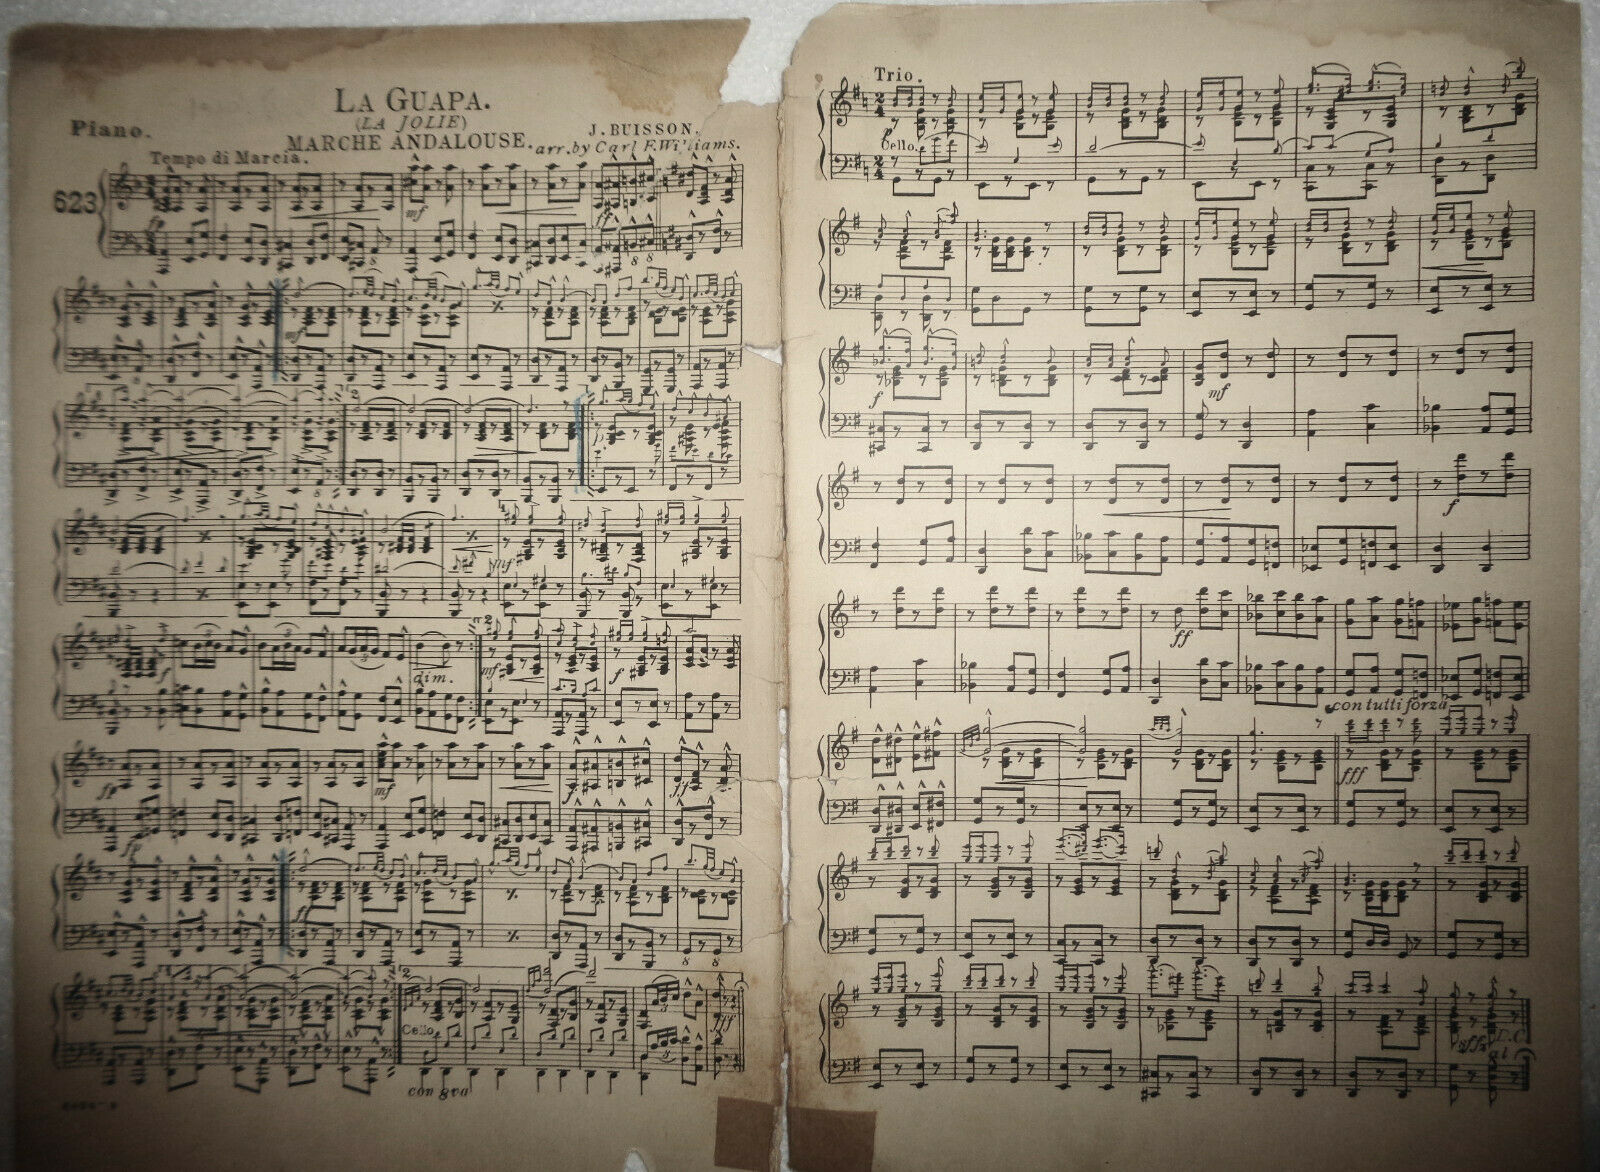 LA GUAPA.
(LA JOLIE)
Piano.
MARCHE ANDALOUSE.
J. BUISSON.
arr. by Carl F. Williams.
Tempo di Marcia.
623
ff
mf
ff
mf
2
p
mf
f
dim.
2
mf
f
ff
mf
f
ff
fp
f
2
Cello.
fff
con 8va
Trio.
p
Cello.
f
mf
f
ff
con tutti forza
fff
sffz
D.C.
al